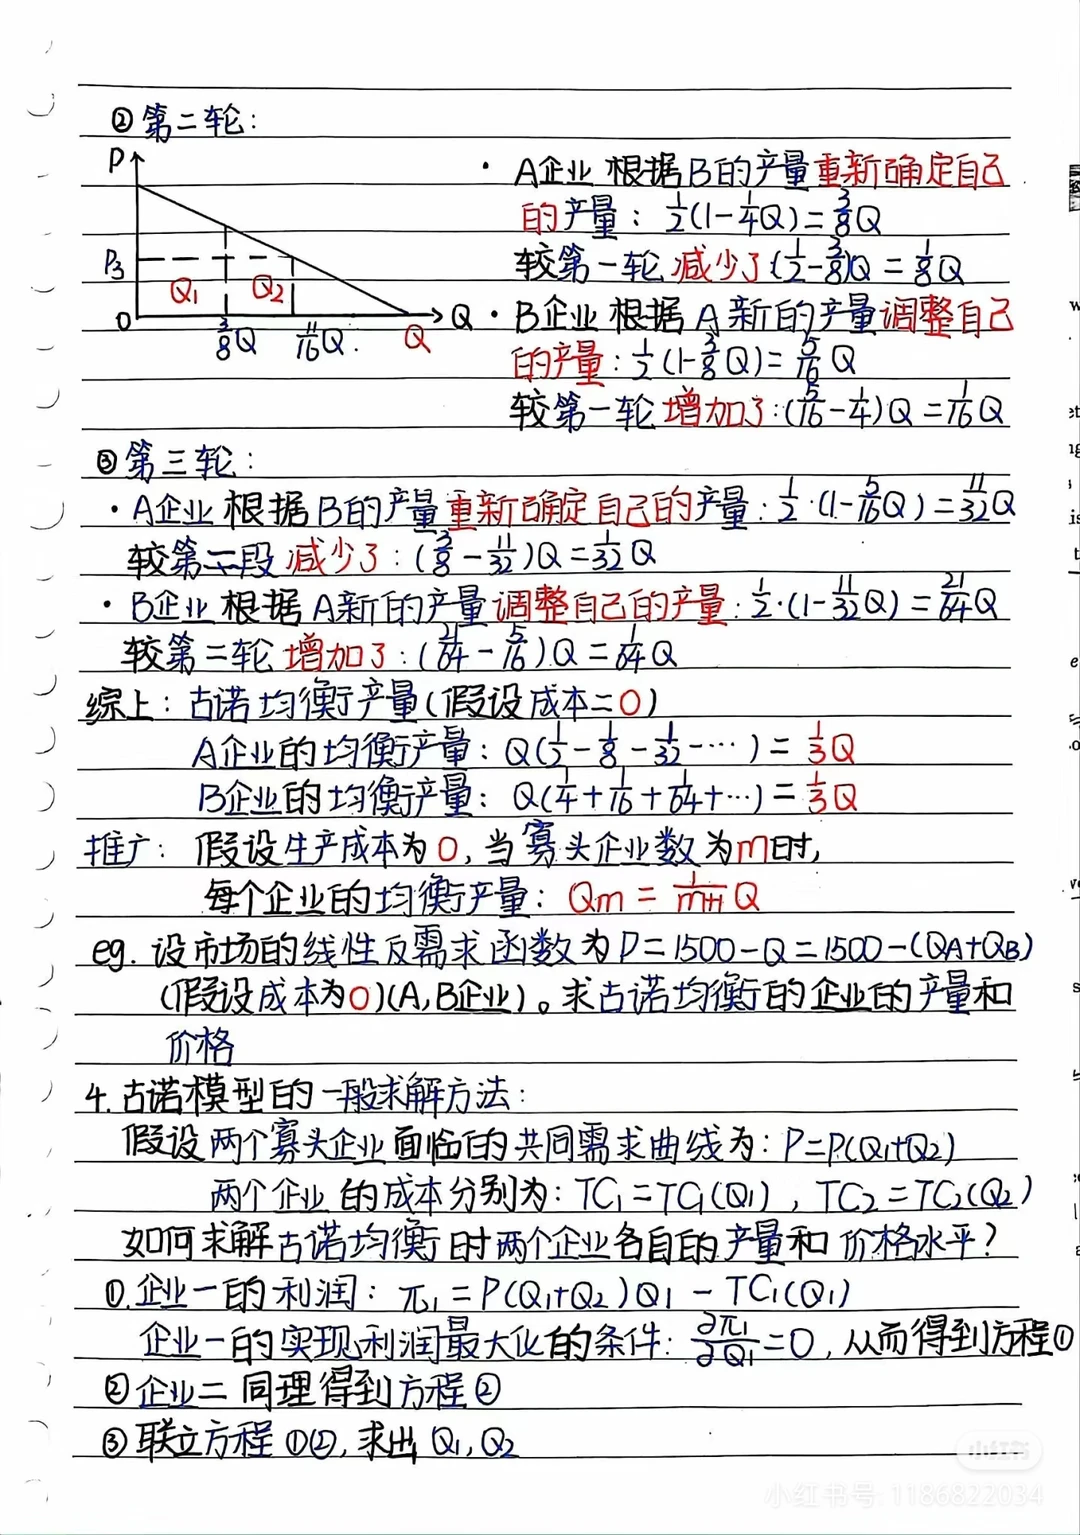 ② 第二轮：
P
P3
Q1
Q2
O
3/8Q
11/16Q.
Q
Q
· A企业根据B的产量重新确定自己
的产量：1/2(1-1/4Q)=3/8Q
较第一轮减少了(1/2-3/8)Q=1/8Q
· B企业根据A新的产量调整自己
的产量：1/2(1-3/8Q)=5/16Q
较第一轮增加了：(5/16-1/4)Q=1/16Q
③ 第三轮：
· A企业根据B的产量重新确定自己的产量：1/2·(1-5/16Q)=11/32Q
较第二段减少了：(3/8-11/32)Q=1/32Q
· B企业根据A新的产量调整自己的产量：1/2·(1-11/32Q)=21/64Q
较第二轮增加了：(21/64-5/16)Q=1/64Q
综上：古诺均衡产量(假设成本=0)
A企业的均衡产量：Q(1/2-1/8-1/32-…)=1/3Q
B企业的均衡产量：Q(1/4+1/16+1/64+…)=1/3Q
推广：假设生产成本为0，当寡头企业数为m时，
每个企业的均衡产量：Qm=1/m+1 Q
eg. 设市场的线性反需求函数为P=1500-Q=1500-(QA+QB)
(假设成本为0)(A,B企业)。求古诺均衡的企业的产量和
价格
4. 古诺模型的一般求解方法：
假设两个寡头企业面临的共同需求曲线为：P=P(Q1+Q2)
两个企业的成本分别为：TC1=TC1(Q1)，TC2=TC2(Q2)
如何求解古诺均衡时两个企业各自的产量和价格水平？
① 企业一的利润：π1=P(Q1+Q2)Q1-TC1(Q1)
企业一的实现利润最大化的条件：∂π1/∂Q1=0，从而得到方程①
② 企业二同理得到方程②
③ 联立方程①②，求出Q1,Q2
小红书
小红书号：1186822034